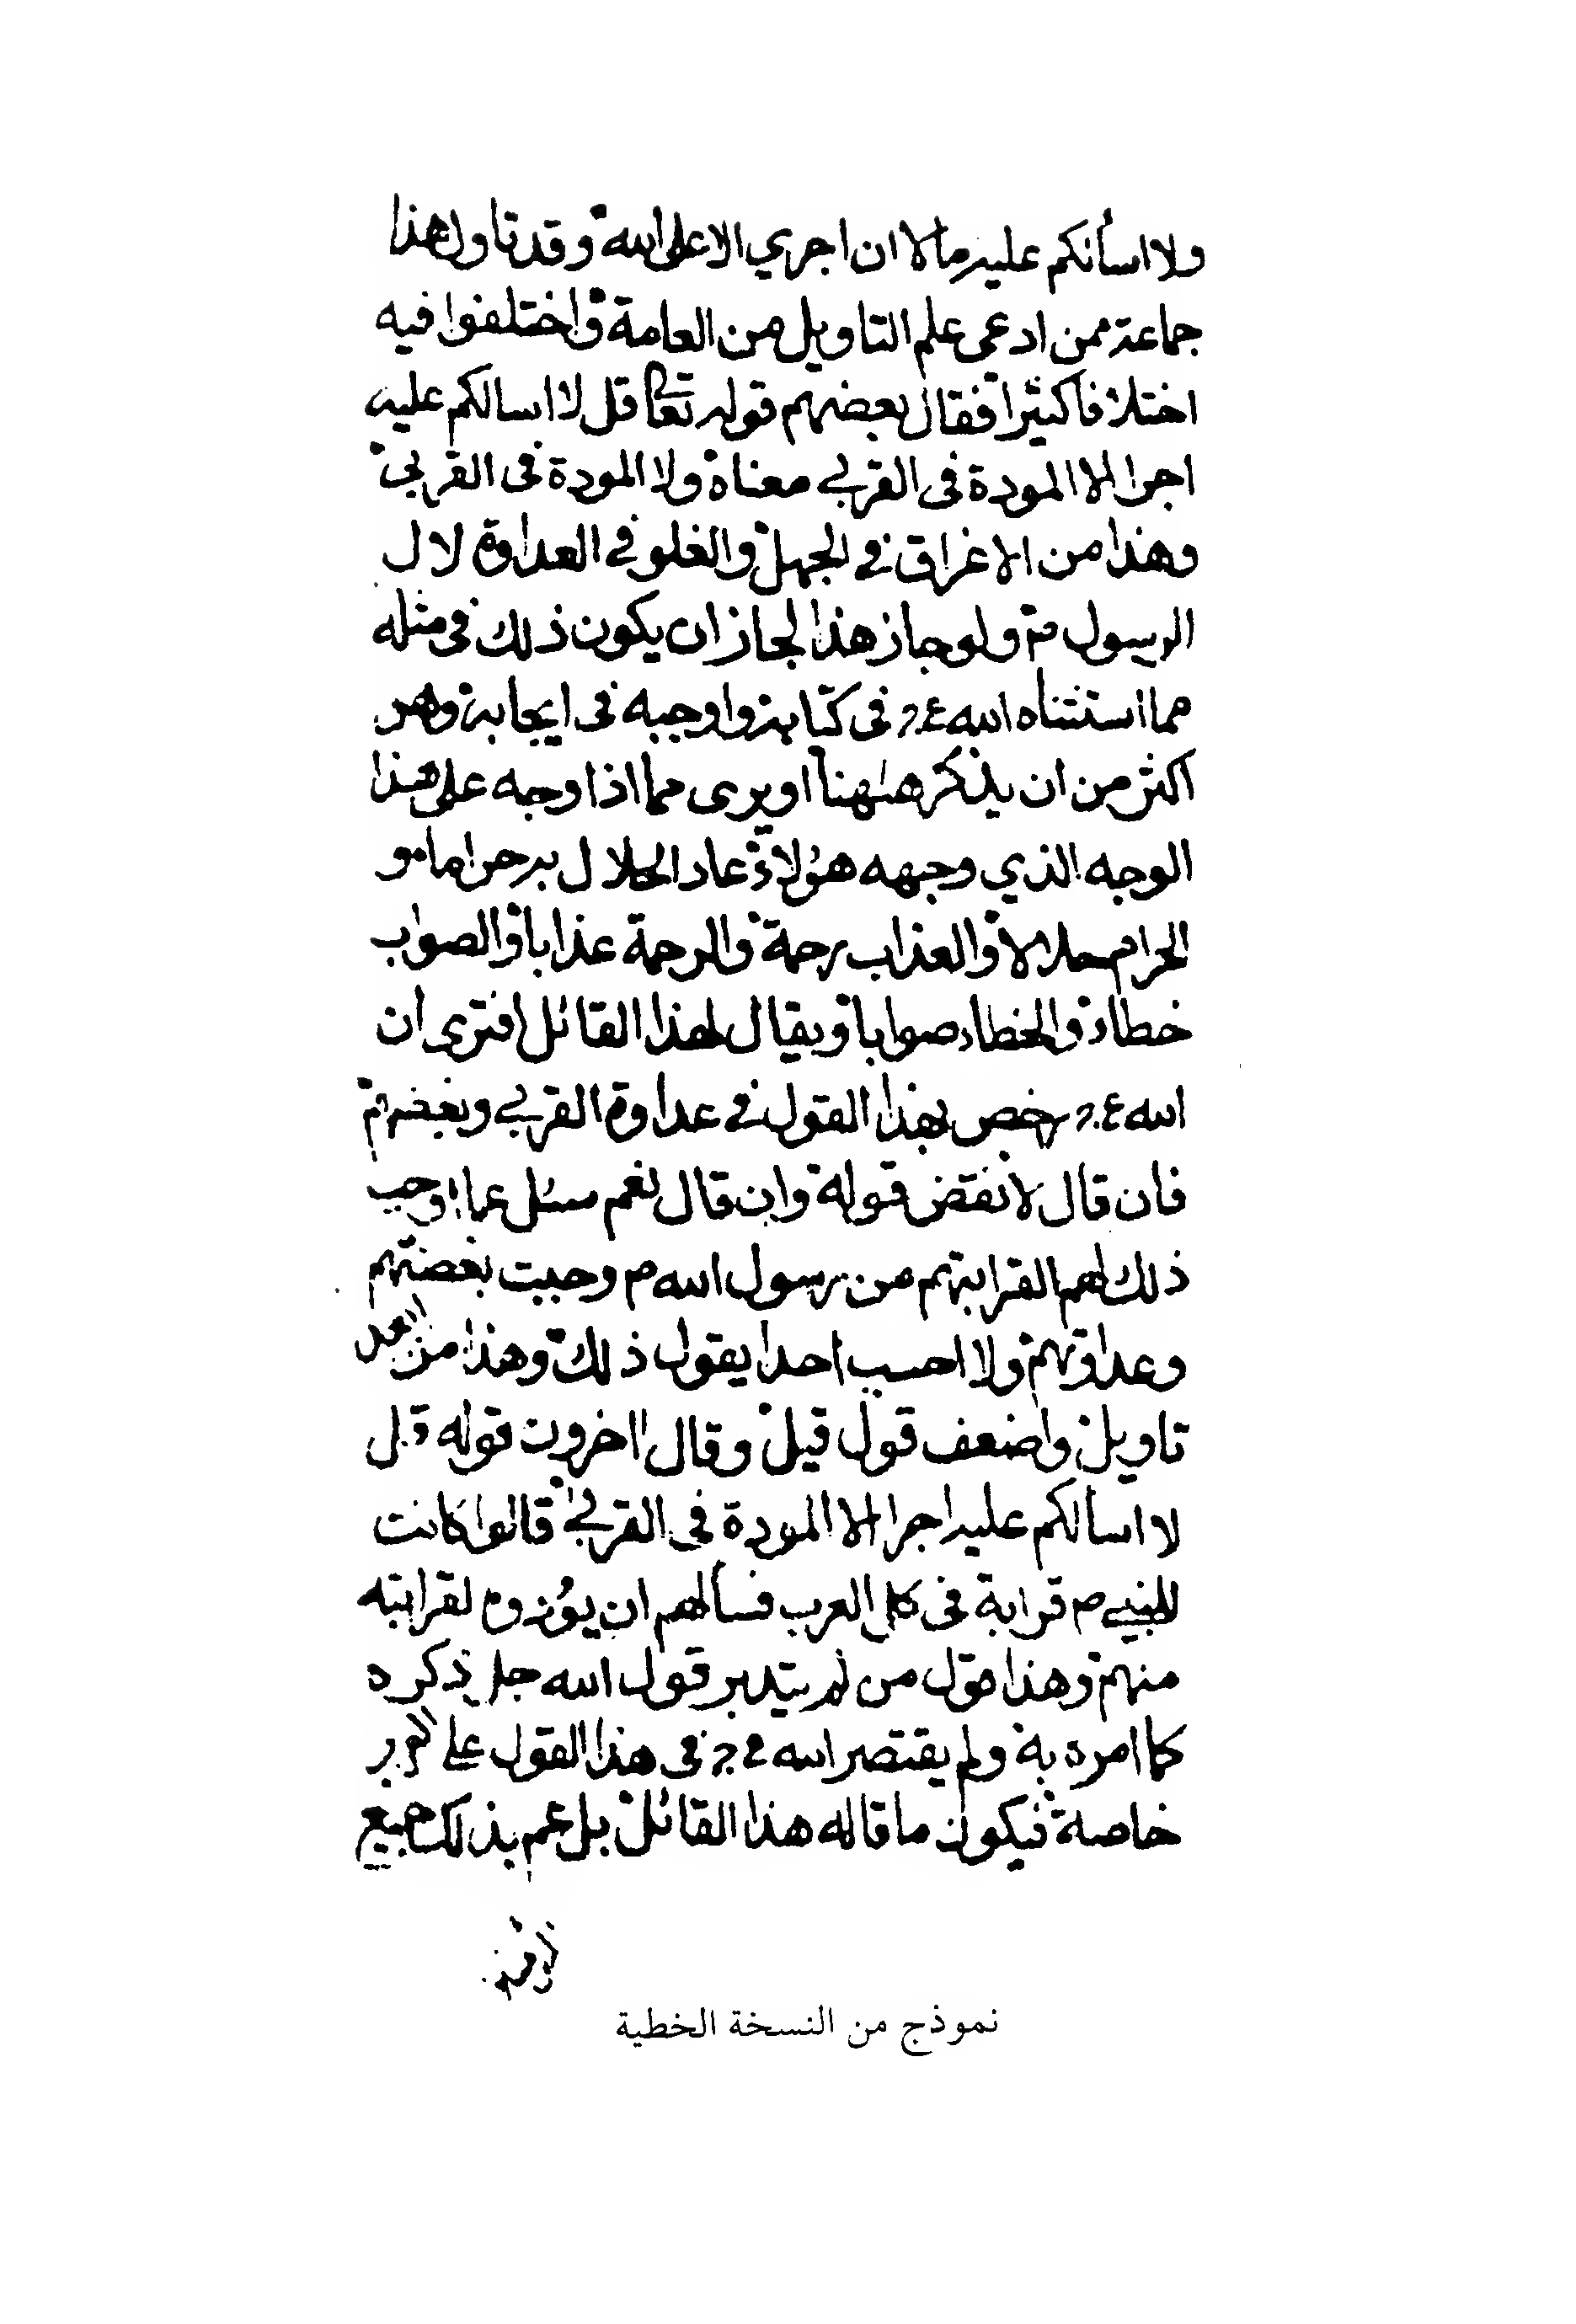 ولا اسألكم عليه مالا ان اجري الا على الله وقد تاول هذا
جماعة ممن ادعى علم التاويل من العامة واختلفوا فيه
اختلافا كثيرا فقال بعضهم قوله تعا قل لا اسالكم عليه
اجرا الا المودة فى القربي معناه ولا المودة فى القربي
وهذا من الاغراق في الجهل والغلو في العداوة لال
الرسول ص ولو جاز هذا لجاز ان يكون ذلك فى مثله
مما استثناه الله ع ج فى كتابه واوجبه فى ايجابه وهو
اكثر من ان يذكر هاهنا او يرى مما اذا وجه على هذا
الوجه الذي وجهه هؤلاء عاد الحلال به حراما و
الحرام حلالا والعذاب رحمة والرحمة عذابا والصواب
خطاء والخطاء صوابا ويقال لهذا القائل افترى ان
الله ع ج رخص بهذا القول في عداوة القربي وبغضهم
فان قال لا نقض قوله وان قال نعم سئل عما اوجب
ذلك لهم القرابتهم من رسول الله ص وجبت بغضتهم
وعداوتهم ولا احسب احدا يقول ذلك وهذا من
تاويل واضعف قول قيل وقال اخرون قوله قل
لا اسالكم عليه اجرا الا المودة فى القربي قالوا كانت
للنبي ص قرابة فى كل العرب فسألهم ان يؤزوه لقرابته
منهم وهذا قول من لم يتدبر قول الله جل ذكره
كما امره به ولم يقتصر الله ع ج فى هذا القول على العرب
خاصة فيكون ما قاله هذا القائل بل عم بذلك جميع
نموذج من النسخة الخطية